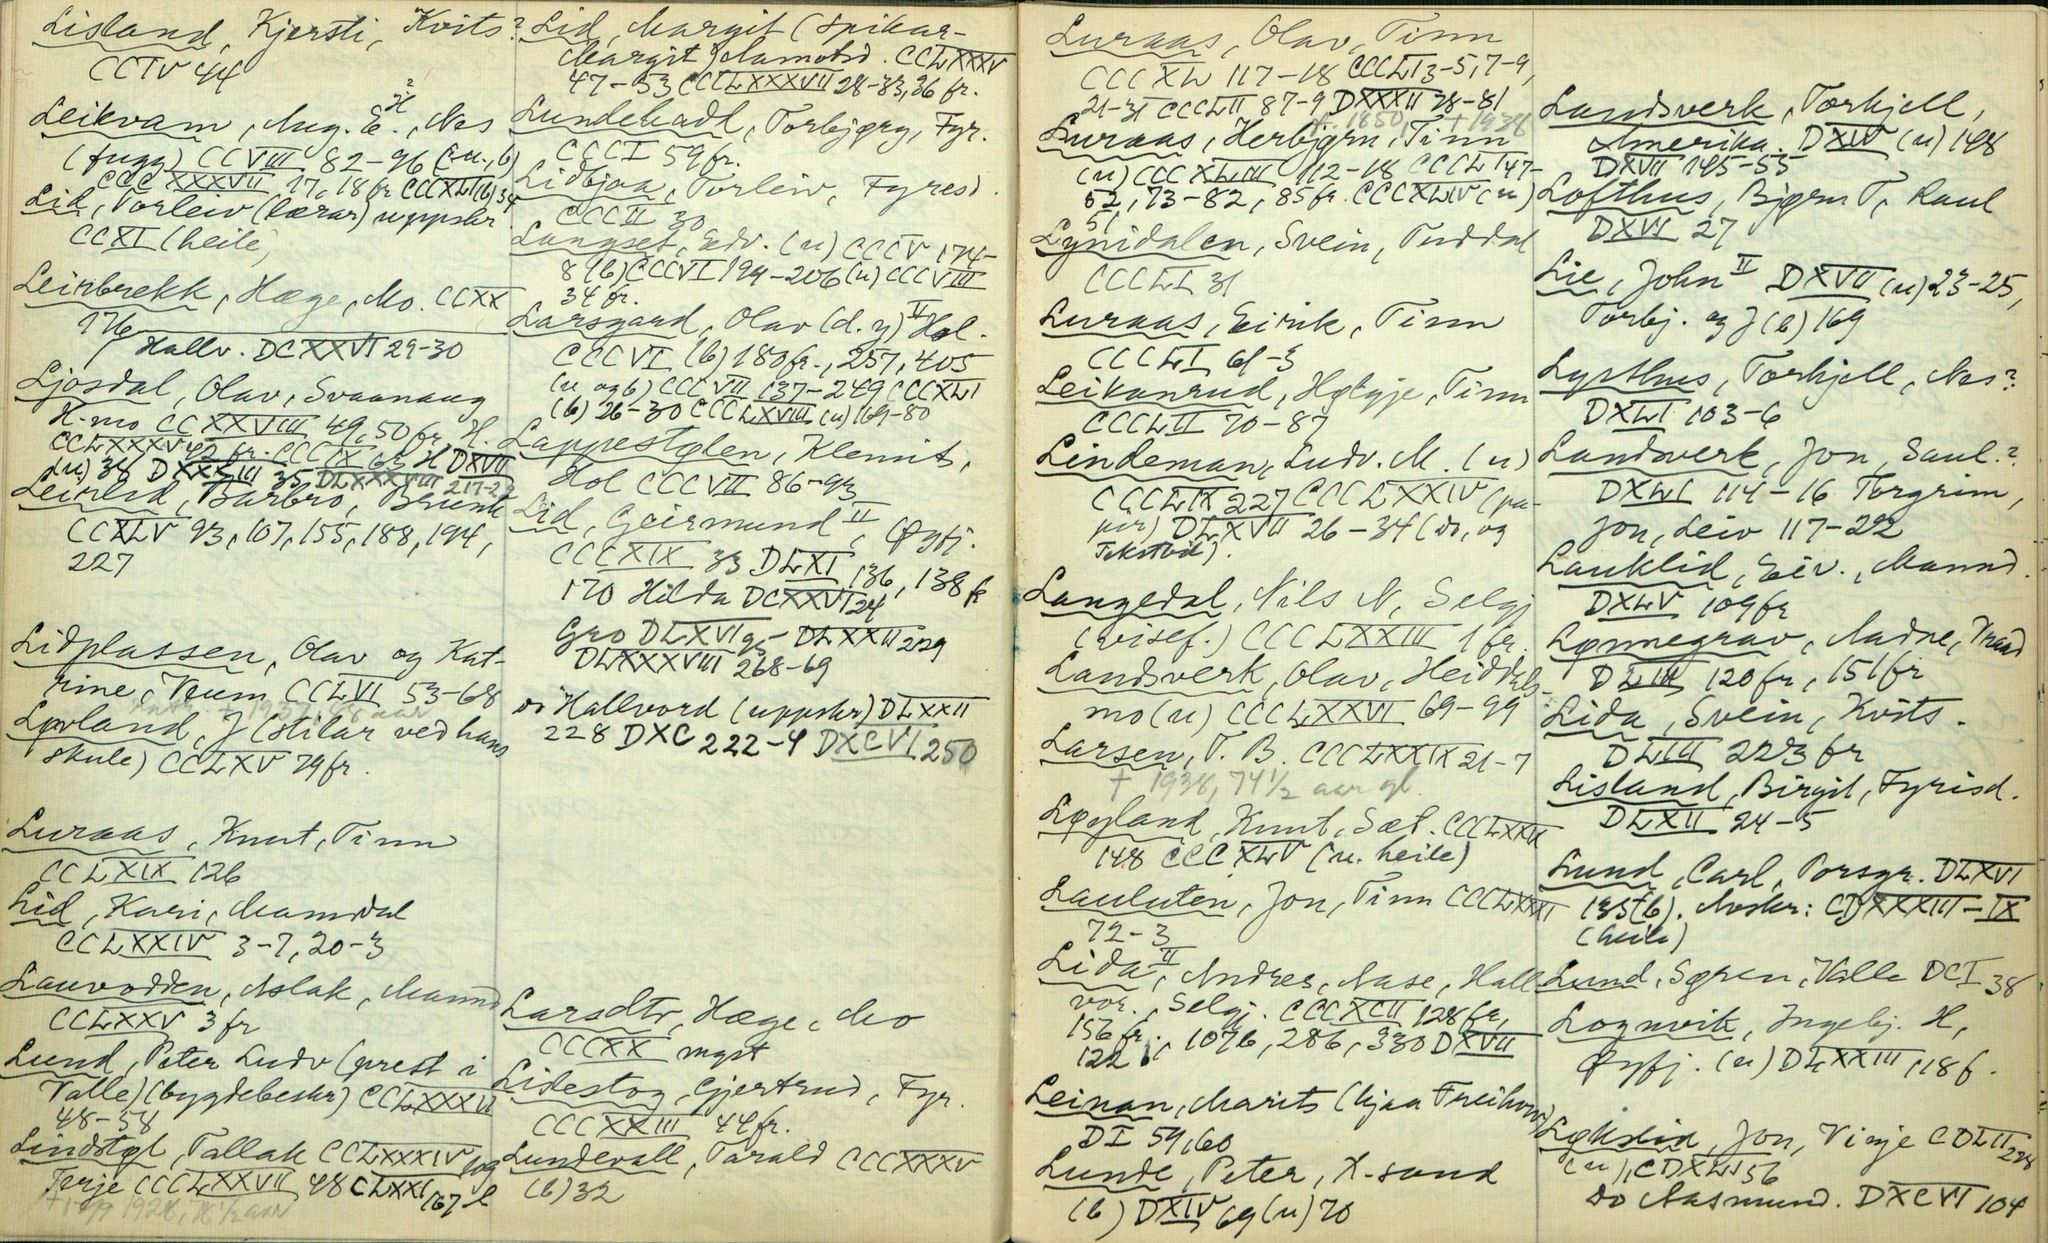 Lisland, Kjersti, Kvits?
CCIV 44
Leikvam, Aug. E., Nes
(fugg) CCVIII 82-96 (u., b)
CCCXXXVII 17, 18 fr CCCXLI (b) 34
Lid, Torleiv (lærar) uppskr.
CCXI (heile)
Leirbrekk, Hæge, Mo. CCXX
176
Hallv. DCXXVI 29-30
Ljosdal, Olav, Svaanaug
H-mo CCXXVIII 49, 50 fr. H.
CCLXXXV 42 fr. CCCIX 63 H DXVII
(u) 34 DXXXIII 35 DLXXXVIII 217-29
Leirlid, Barbro, Brunk
CCXLV 93, 107, 155, 188, 194,
227
Lidplassen, Olav og Kat-
rine, Veum CCLVI 53-68
Løvland, J (stilar ved hans
skule) CCLXV 79 fr.
Luraas, Knut, Tinn
CCLXIX 126
Lid, Kari, Mamdal
CCLXXIV 3-7, 20-3
Lauvodden, Aslak, Mannd
CCLXXV 3 fr
Lund, Peter Ludv (prest i
Valle) (bygdebeskr) CCLXXXVI
48-58
Lindstøl, Tallak CCLXXXIV
Terje CCCLXXVII 48 CLXXI 167
Lid, Margit (Spikar-
Margit) Mamotsd. CCLXXXV
47-53 CCCLXXXVII 28-33, 36 fr.
Lundekadl, Torbjørg, Fyr.
CCCI 59 fr.
Lidbjaa, Torleiv, Fyresd.
CCCII 30
Langset, Edv. (u) CCCV 174-
8 (b) CCCVI 194-206 (u) CCCVIII
34 fr.
Larsgard, Olav (d. y) II Hol.
CCCVI (b) 180 fr., 257, 405
(u og b) CCCVII 137-249 CCCXLI
(b) 26-30 CCCLXVIII (u) 169-80
Lappestølen, Klemit,
Hol CCCVII 86-93
Lid, Geirmund II, Øyfj.
CCCXIX 33 DLXI 136, 138 fr
170 Hilda DCXXVI 24
Gro DLXVI 95 - DLXXII 229
DLXXXVIII 268-69
do Hallvord (uppskr) DLXXII
228 DXC 222-4 DXCVI 250
Larsdtr, Hæge, Mo
CCCXX mgst
Lidestog, Gjertrud, Fyr.
CCCXXIII 44 fr.
Lundevall, Tarald CCCXXXV
(b) 32
Luraas, Olav, Tinn
CCCXLV 117-18 CCCLI 3-5, 7-9,
21-31 CCCLII 87-9 DXXXII 78-81
f. 1850, † 1938
Luraas, Herbjørn, Tinn
(u) CCCXLIII 112-18 CCCLI 47-
52, 73-82, 85 fr. CCCXLIV (u)
51
Lynidalen, Svein, Tuddal
CCCLI 31
Luraas, Eirik, Tinn
CCCLI 61-3
Leikanrud, Høkyje, Tinn
CCCLII 70-87
Lindeman, Ludv. M. (u)
CCCLIX 227 CCCLXXIV (pa-
pir) DLXVII 26-34 (do, og
Tekstbd).
Langedal, Nils N, Selgj
(visef.) CCCLXXIII 1 fr.
Landsverk, Olav, Heiddals-
mo (u) CCCLXXVI 69-99
Larsen, T. B. CCCLXXIX 21-7
† 1938, 74 1/2 aar gl.
Løyland, Knut, Sæt. CCCLXXIX
148 CCCXLV (u. heile)
Lauluten, Jon, Tinn CCCLXXXI
72-3
Lida II, Andres, Aase, Hall
vor., Selgj. CCCXCII 128 fr,
156 fr., 1096, 286, 330 DXVII
122
Leinan, Marits (hjaa Freihow)
DI 59, 60
Lunde, Peter, K-sand
(b) DXIV 69 (u) 70
Landsverk, Torkjell,
Amerika. DXIV (u) 148
DXVII 145-55
Lofthus, Bjørn T, Raul
DXVI 27
Lie, John II DXVII (u) 23-25,
Torbj. og J (b) 169
Lysthus, Torkjell, Nes?
DXLI 103-6
Landsverk, Jon, Saul.?
DXLI 114-16 Torgrim,
Jon, Leiv 117-22
Lauklid, Eiv., Mannd.
DXLV 109 fr
Lønnegrav, Aadne, Traad
DLIII 120 fr, 151 fr
Lida, Svein, Kvits.
DLIII 223 fr
Lisland, Birgit, Fyrisd.
DLXII 24-5
Lund, Carl, Porsgr. DLXVI
185 (b). Avskr: CDXXXIII-IX
(heile)
Lund, Søren, Valle DCI 38
Lognvik, Ingebj. H,
Øyfj. (u) DLXXIII, 118 f.
Løkslid, Jon, Vinje CDLII 228
(u), CDXLV 56
do Aasmund. DXCVI 104